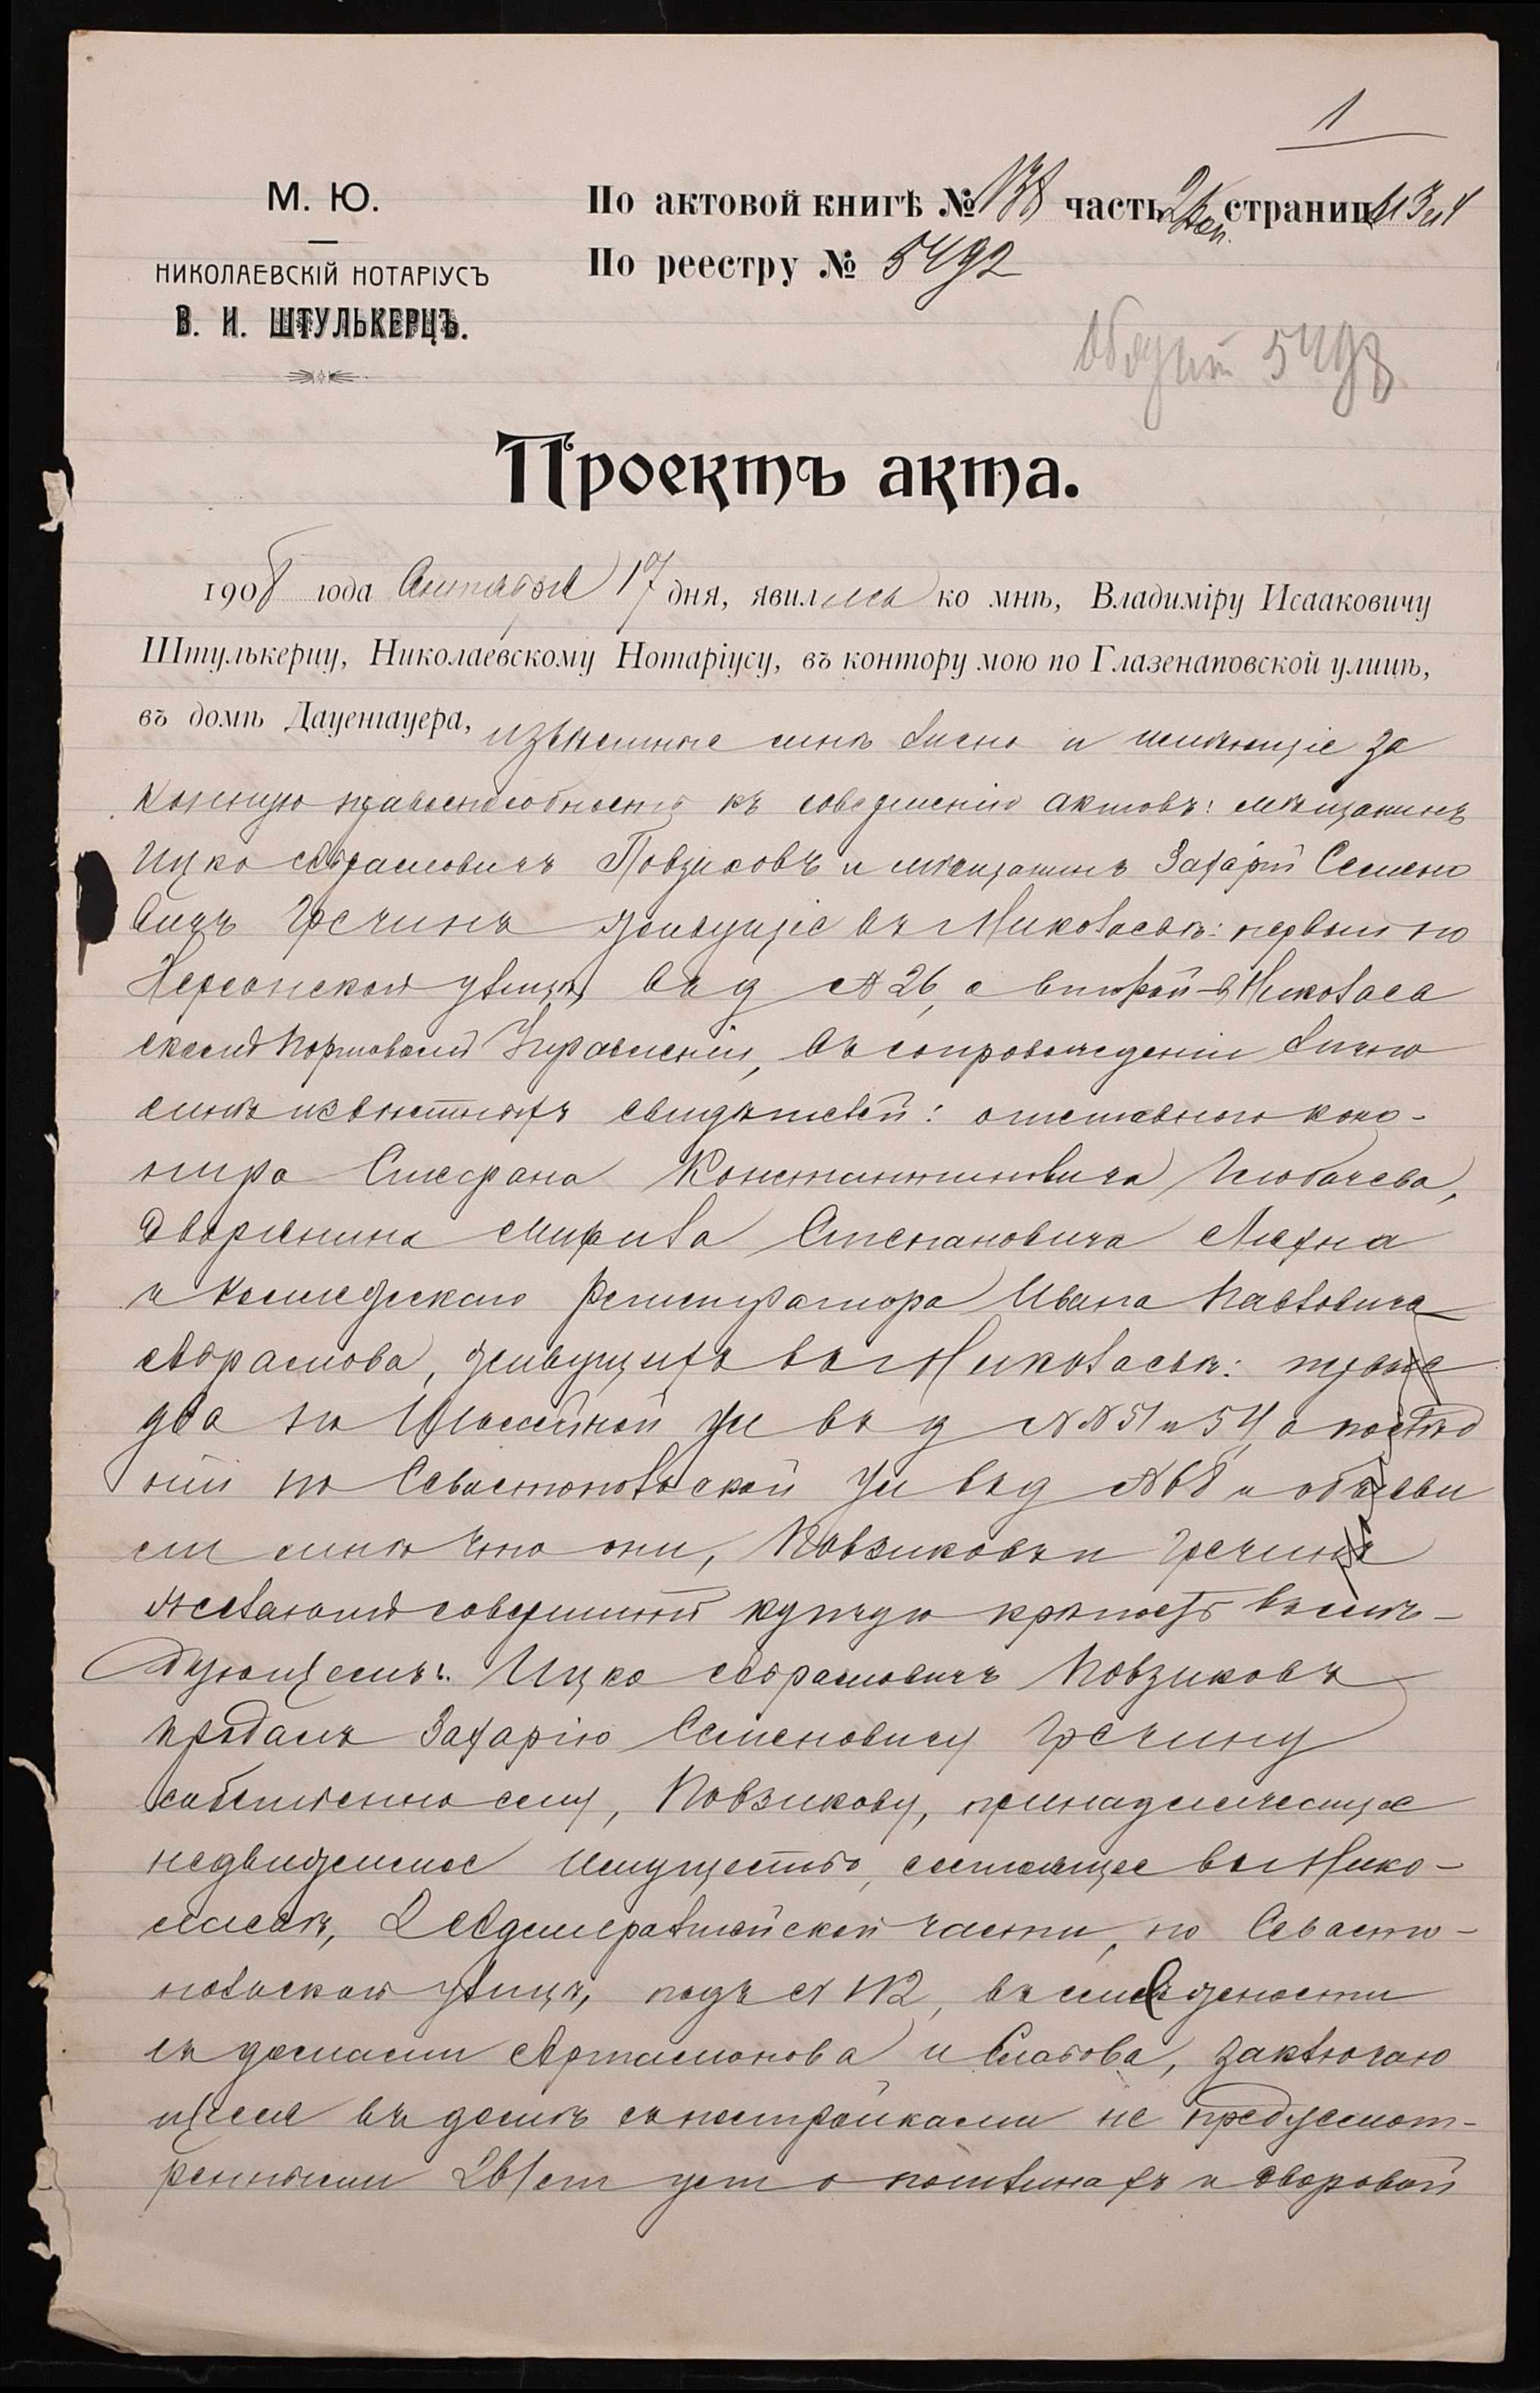 1
М. Ю.
НИКОЛАЕВСКІЙ НОТАРІУСЪ
В. И. ШТУЛЬКЕРЦЪ.
По актовой книгѣ № 138 часть 2 страницы 3 и 4
По реестру № 5492
5498
Проектъ акта.
1908 года Сентября 17 дня, явились ко мнѣ, Владиміру Исааковичу
Штулькерцу, Николаевскому Нотаріусу, въ контору мою по Глазенаповской улицѣ,
въ домѣ Дауенгауера, извѣстные мнѣ лично и имѣющіе за
конную правоспособность къ совершенію актовъ: мѣщанинъ
Ицко Абрамовичъ Повзиковъ и мѣщанинъ Захарій Семено
вичъ Гречинъ живущіе въ Николаевѣ: первый по
Херсонской улицѣ, въ д № 26, а второй въ Николаев
скомъ Портовомъ Управленіи, въ сопровожденіи лично
мнѣ извѣстныхъ свидѣтелей: отставного кано-
нира Степана Константиновича
Дворянина Степановича
и Коллежскаго Регистратора Ивана Павловича
Абрамова, живущихъ въ Николаевѣ: первые
два по ул въ д №№ 51 и 54, а послѣд
ній по Севастопольской ул въ д № 68 и объяви
ли мнѣ что они, Повзиковъ и Гречинъ
желаютъ совершить купчую крѣпость въ слѣ-
дующемъ: Ицко Абрамовичъ Повзиковъ
продалъ Захарію Семеновичу Гречину
собственно ему, Повзикову, принадлежащее
недвижимое имущество, состоящее въ Нико-
лаевѣ, 2 Адмиралтейской части, по Севасто-
польской улицѣ, подъ № 112, въ смежности
съ домами Артамонова и заключаю
щееся въ домѣ съ постройками не предусмот-
ренными 261 ст уст о пошлинахъ и дворовой